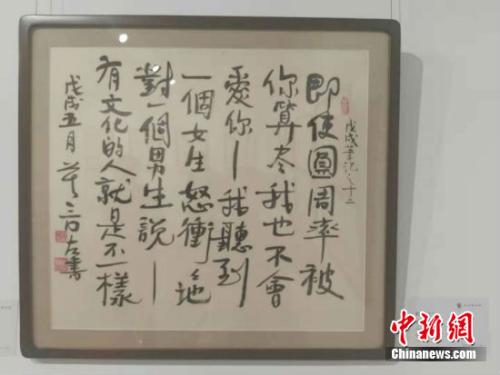 戊戌筆記之十三
即使圓周率被
你算尽我也不會
愛你—我聽到
一個女生怒衝々地
對一個男生説—
有文化的人就是不一樣
戊戌五月
中新網
Chinanews.com